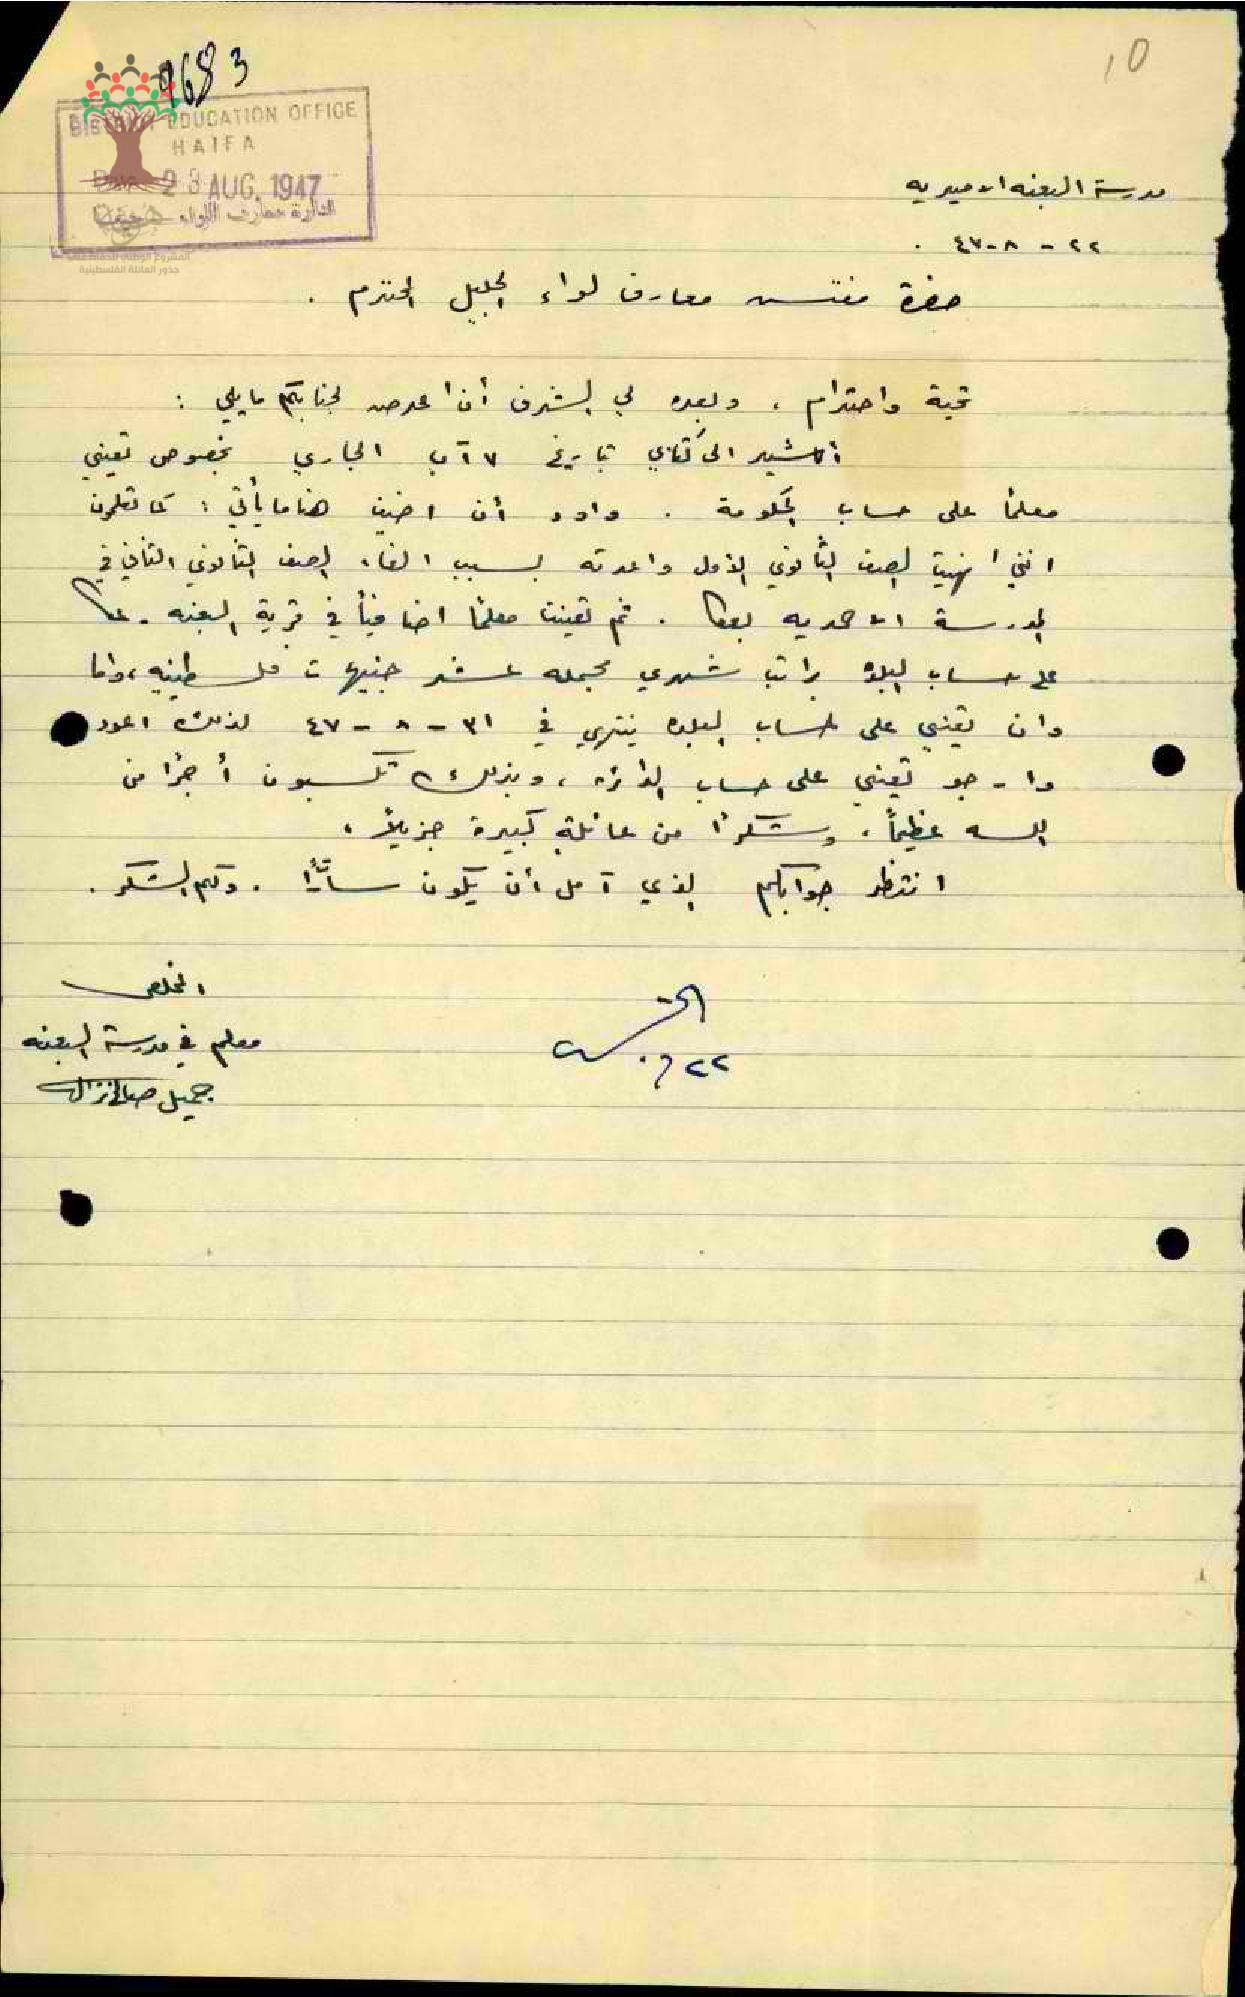 10
9683
DISTRICT EDUCATION OFFICE
HAIFA
Date 23 AUG. 1947
المشروع الوطني للحفاظ على
جذور العائلة الفلسطينية
مدرسة البعنه الاميريه
٢٢ - ٨ - ٤٧ .
حضرة مفتش معارف لواء الجليل المحترم .
تحية واحترام ، وبعد لي الشرف أن اعرض لجنابكم ما يلي :
أشير الى كتابي بتاريخ ٧ آب الجاري بخصوص تعيني
معلماً على حساب الحكومة . واود أن اضيف هنا ما يأتي : كما تعلمون
انني انهيت الصف الثانوي الاول واعدته بسبب الغاء الصف الثانوي الثاني في
المدرسة الاحمديه بعكا . ثم تعينت معلماً اضافياً في قرية البعنه - عكا
على حساب البلد براتب شهري مجمله عشر جنيهات فلسطينيه ، واما
وان تعيني على حساب البلد ينتهي في ٣١ - ٨ - ٤٧ لذلك اعود
وارجو تعيني على حساب الدائرة ، وبذلك تكسبون أجراً من
الله عظيماً ، وشكراً من عائلة كبيرة جزيلاً .
انتظر جوابكم الذي آمل أن يكون ساراً . ولكم الشكر .
المخلص
معلم في مدرسة البعنه
جميل صالح
٢٢